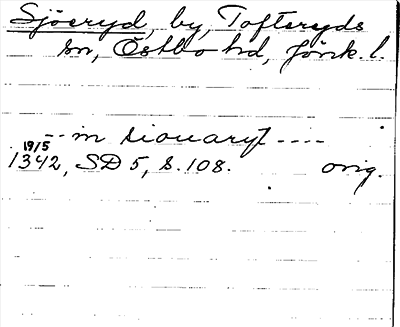 Sjöeryd, by, Tofteryds
sn, Östbo hd, Jönk. l.
-- in siouaryt ----
19/5
1342, SD 5, s. 108. orig.